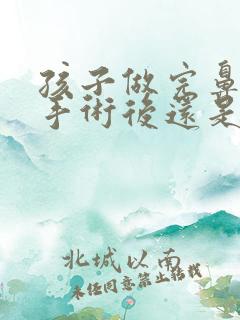 孩子做完鼻
手術後還是
北城以南
未经同意禁止转载